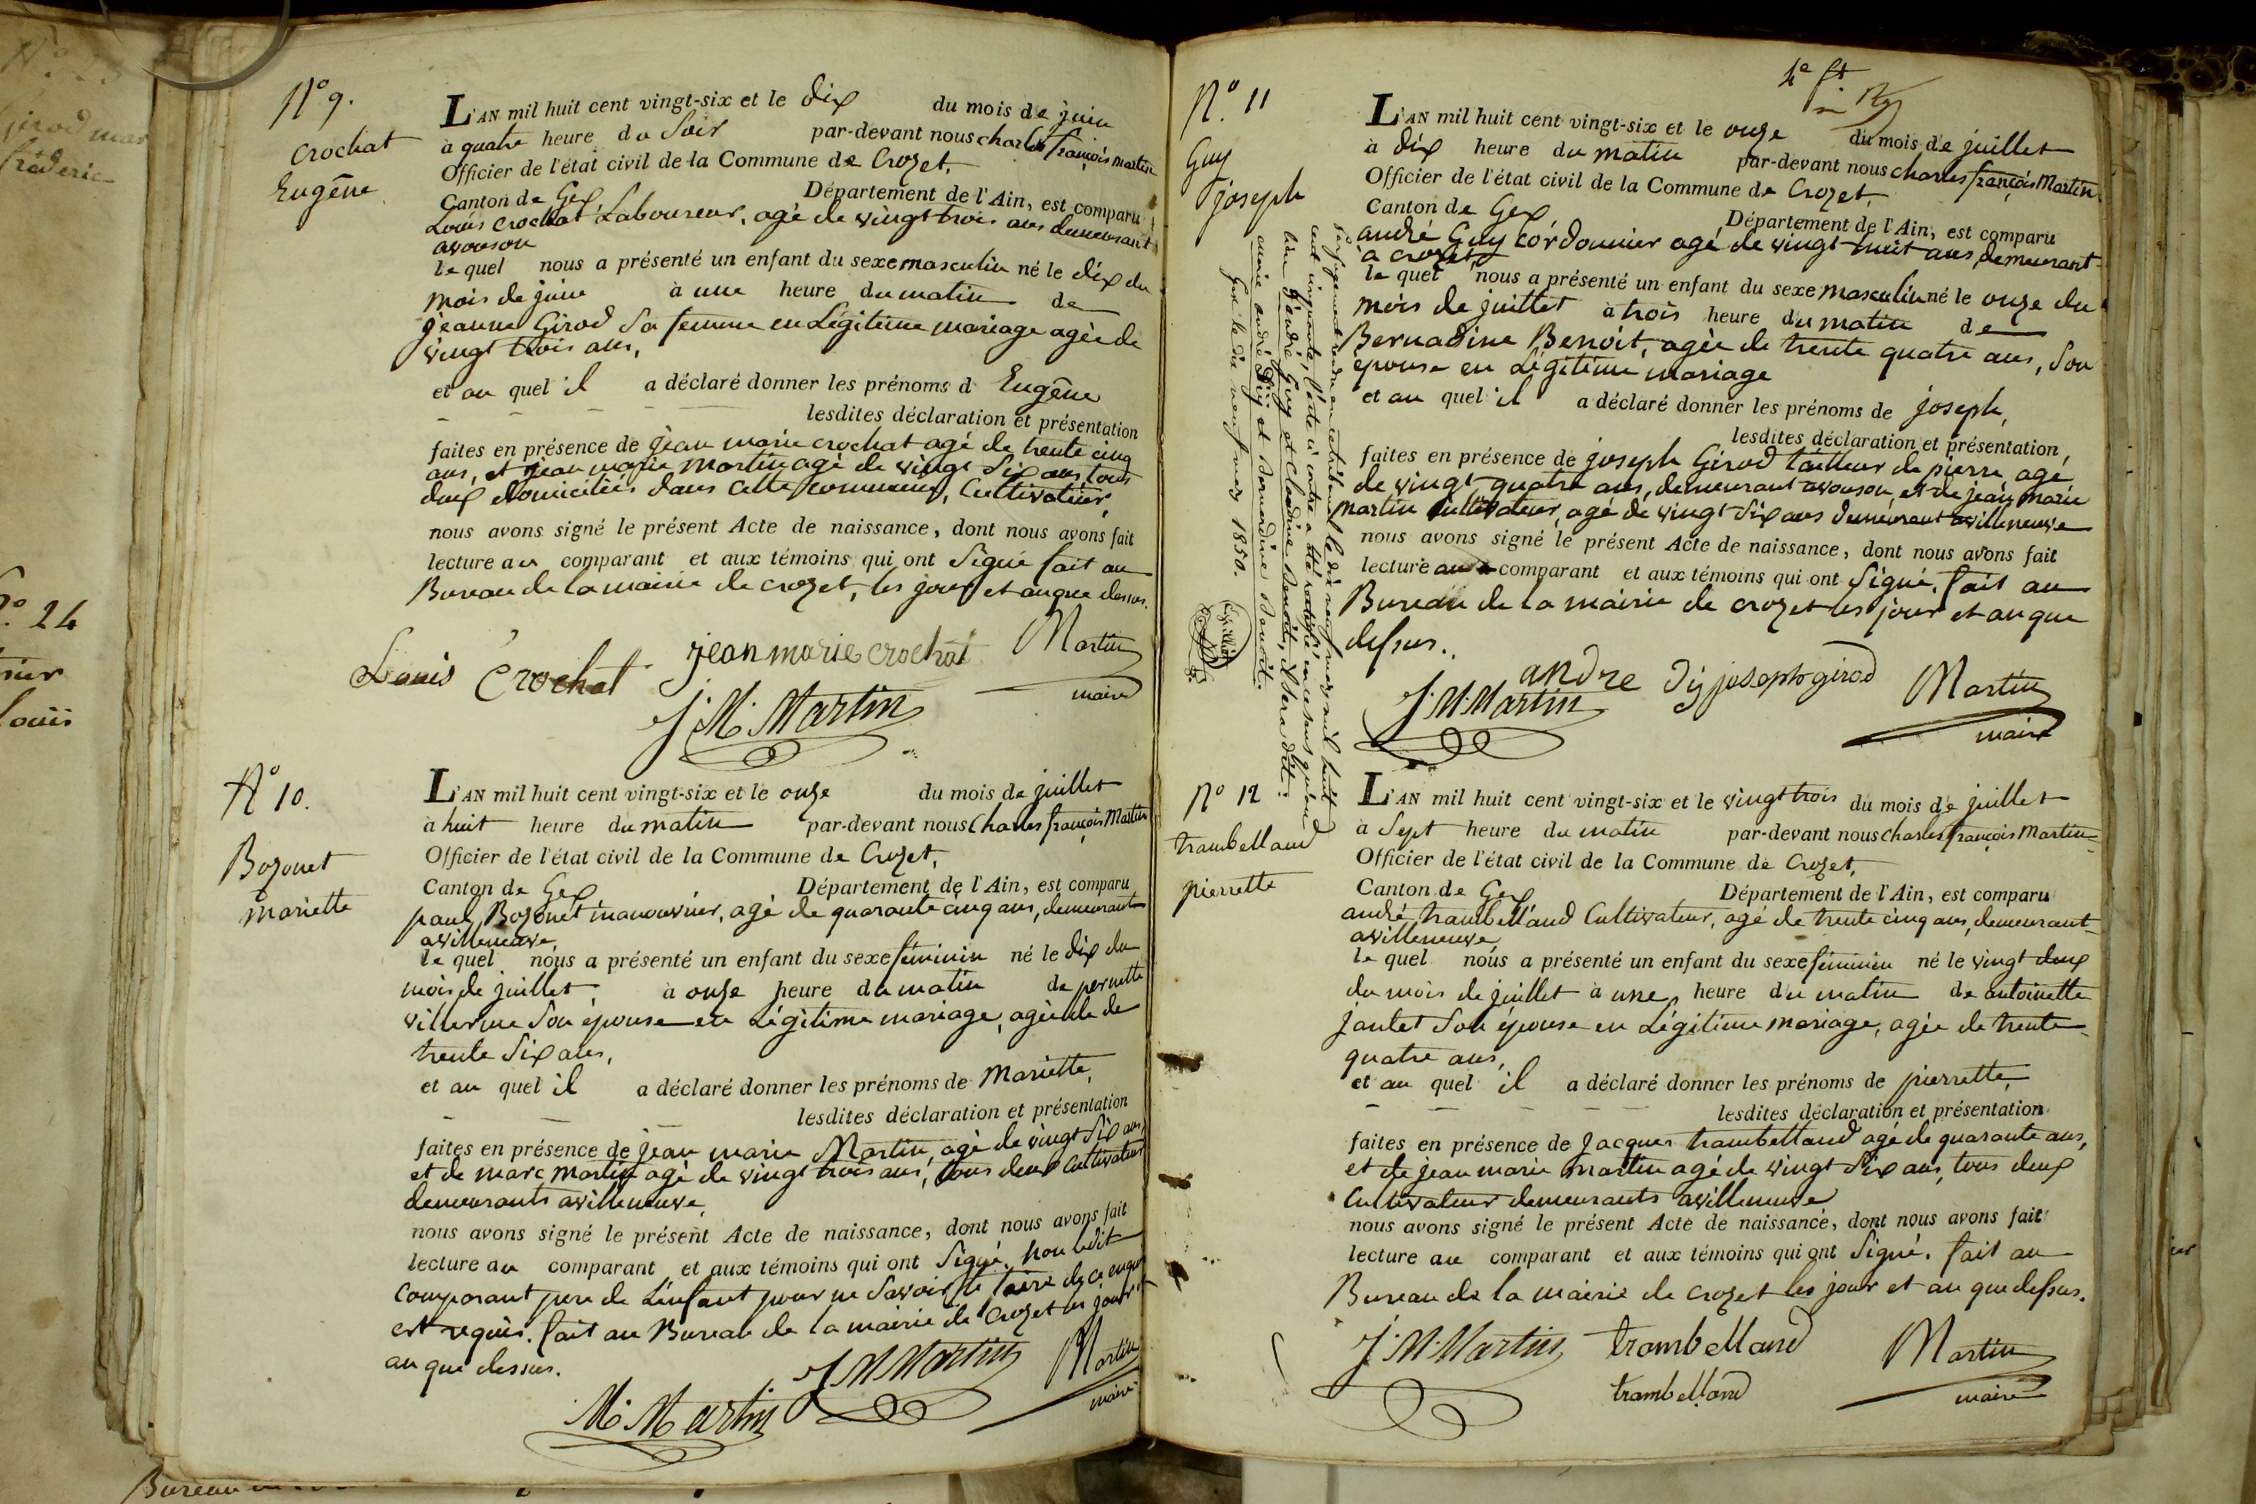 N° 9.
Crochat
Eugêne
L'AN mil huit cent vingt-six et le dix du mois de juin
à quatre heure du Soir par-devant nous charles françois martin
Officier de l'état civil de la Commune de Crozet,
Canton de Gex Département de l'Ain, est comparu
Louis Crochat Laboureur, agé de vingt trois ans demeurant
avouson
le quel nous a présenté un enfant du sexe masculin né le dix du
mois de juin à une heure du matin de
jeanne Girod Sa femme en Légitime mariage agée de
vingt trois ans,
et au quel il a déclaré donner les prénoms d Eugêne
lesdites déclaration et présentation
faites en présence de jean marie crochat agé de trente cinq
ans, et jean marie martin agé de vingt Six ans tous
deux domiciliés dans cette commune, Cultivateur,
nous avons signé le présent Acte de naissance, dont nous avons fait
lecture au comparant et aux témoins qui ont Signé fait au
Bureau de la mairie de crozet, les jour et an que dessus.
Louis Crochat jean marie crochat Martin
J. M. Martin maire
N° 10.
Bozonet
mariette
L'AN mil huit cent vingt-six et le onze du mois de juillet
à huit heure du matin par-devant nous Charles françois Martin
Officier de l'état civil de la Commune de Crozet,
Canton de Gex Département de l'Ain, est comparu
paul Bozonet manouvrier, agé de quarante cinq ans, demeurant
avilleneuve,
le quel nous a présenté un enfant du sexe féminin né le dix du
mois de juillet, à onze heure du matin de pernette
villerme Son épouse en Légitime mariage, agée de de
trente Six ans,
et au quel il a déclaré donner les prénoms de Mariette,
lesdites déclaration et présentation
faites en présence de jean marie Martin, agé de vingt Six ans,
et de marc martin agé de vingt trois ans, tous deux Cultivateur
demeurants avilleneuve,
nous avons signé le présent Acte de naissance, dont nous avons fait
lecture au comparant et aux témoins qui ont Signé, non ledit
comparant pere de L'enfant pour ne Savoir le faire de ce enquis
est requis. fait au Bureau de la mairie de Crozet les jour et
an que dessus.
M. Martin J M Martin Martin
maire
4e ft
N° 11
Guy
joseph
L'AN mil huit cent vingt-six et le onze du mois de juillet
à dix heure du matin par-devant nous charles françois Martin
Officier de l'état civil de la Commune de Crozet,
Canton de Gex Département de l'Ain, est comparu
andré Guy Cordonnier agé de vingt huit ans, demeurant
à crozet,
le quel nous a présenté un enfant du sexe masculin né le onze du
mois de juillet à trois heure du matin de
Bernadine Benoit, agée de trente quatre ans, Son
épouse en Légitime mariage
et au quel il a déclaré donner les prénoms de joseph,
lesdites déclaration et présentation,
faites en présence de joseph Girod tailleur de pierre, agé
de vingt quatre ans, demeurant avouson, et de jean marie
martin Cultivateur, agé de vingt Six ans demeurant avilleneuve
nous avons signé le présent Acte de naissance, dont nous avons fait
lecture au comparant et aux témoins qui ont Signé. fait au
Bureau de la mairie de crozet les jour et an que
dessus.
andre Dij joseph girod Martin
J. M. Martin maire
Par jugement rendu au tribunal le dix neuf mars mil huit
cent cinquante, l'acte ci contre a été rectifié en ce sens qu'au
lieu d'andré Guy et Claudine Benoit, il sera dit:
andré Dij et Bernardine Benoit.
Gex le dix neuf mars 1850.
N° 12
trambelland
pierrette
L'AN mil huit cent vingt-six et le vingt trois du mois de juillet
à Sept heure du matin par-devant nous charles françois Martin
Officier de l'état civil de la Commune de Crozet,
Canton de Gex Département de l'Ain, est comparu
andré, trambelland Cultivateur, agé de trente cinq ans, demeurant
avilleneuve,
le quel nous a présenté un enfant du sexe féminin né le vingt deux
du mois de juillet à une, heure du matin de antoinette
jantet Son épouse en Légitime mariage, agée de trente
quatre ans,
et au quel il a déclaré donner les prénoms de pierrette,
lesdites déclaration et présentation
faites en présence de Jacques trambelland agé de quarante ans,
et de jean marie martin agé de vingt Six ans, tous deux
Cultivateur demeurants avilleneuve
nous avons signé le présent Acte de naissance, dont nous avons fait
lecture au comparant et aux témoins qui ont Signé. fait au
Bureau de la mairie de crozet les jour et an que dessus.
J. M. Martin trambelland Martin
trambelland maire